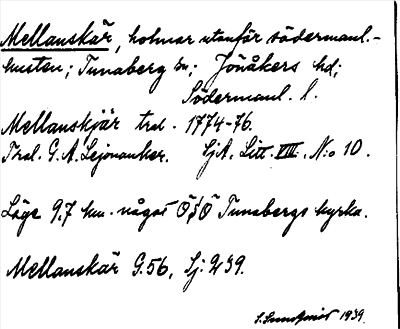 Mellanskär, holmar utanför södermanl.-
kusten; Tunaberg sn; Jönåkers hd;
Södermanl. l.
Mellanskjär trol. 1774-76.
Throl. G. A. Lejonanker. SjA, Litt. VIII. N:o 10.
Läge 9,7 km. något ÖSÖ Tunabergs kyrka.
Mellanskär G.56, Sj: 239.
S. Sundqvist 1939.